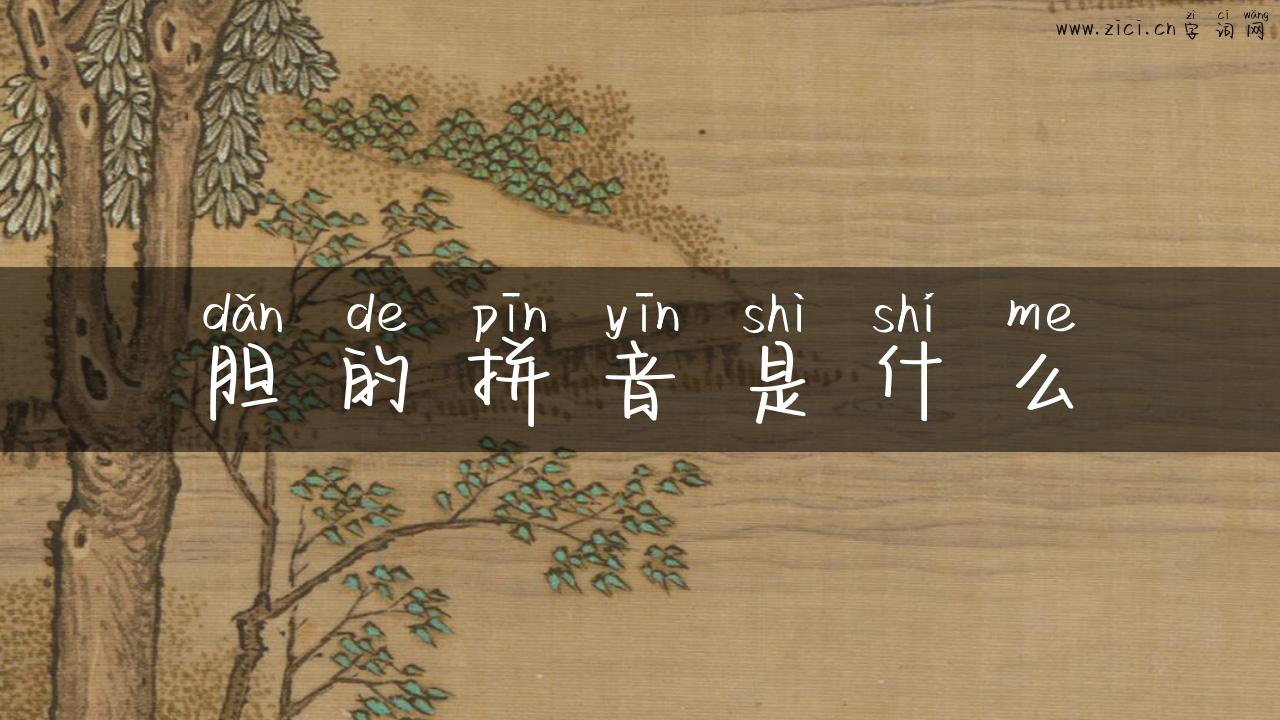 zì cí wǎng
www.zici.cn 字词网
dǎn de pīn yīn shì shí me
胆的拼音是什么